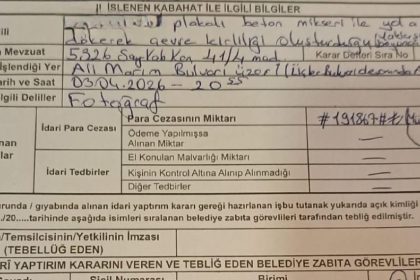 II İŞLENEN KABAHAT İLE İLGİLİ BİLGİLER
plakalı beton mikseri ile yola
dökerek çevre kirliliği oluşturduğu
Mevzuat 5326 Say Kab Kan 41/4 mad. Karar Defteri Sıra No
İşlendiği Yer Ali Marim Bulvarı üzeri
arih ve Saat 03.04.2026 - 20 55
ilgili Deliller Fotoğraf
İdari Para Cezası Para Cezasının Miktarı #191867#
Ödeme Yapılmışsa
Alınan Miktar —
İdari Tedbirler El Konulan Malvarlığı Miktarı —
Kişinin Kontrol Altına Alınıp Alınmadığı —
Diğer Tedbirler —
urunda / gıyabında alınan idari yaptırım kararı gereği hazırlanan işbu tutanak yukarıda açık kimliği
/20.....tarihinde aşağıda isimleri sıralanan belediye zabıta görevlileri tarafından tebliğ edilmiştir.
/Temsilcisinin/Yetkilinin İmzası
(TEBELLÜĞ EDEN)
ARİ YAPTIRIM KARARINI VEREN VE TEBLİĞ EDEN BELEDİYE ZABITA GÖREVLİLER